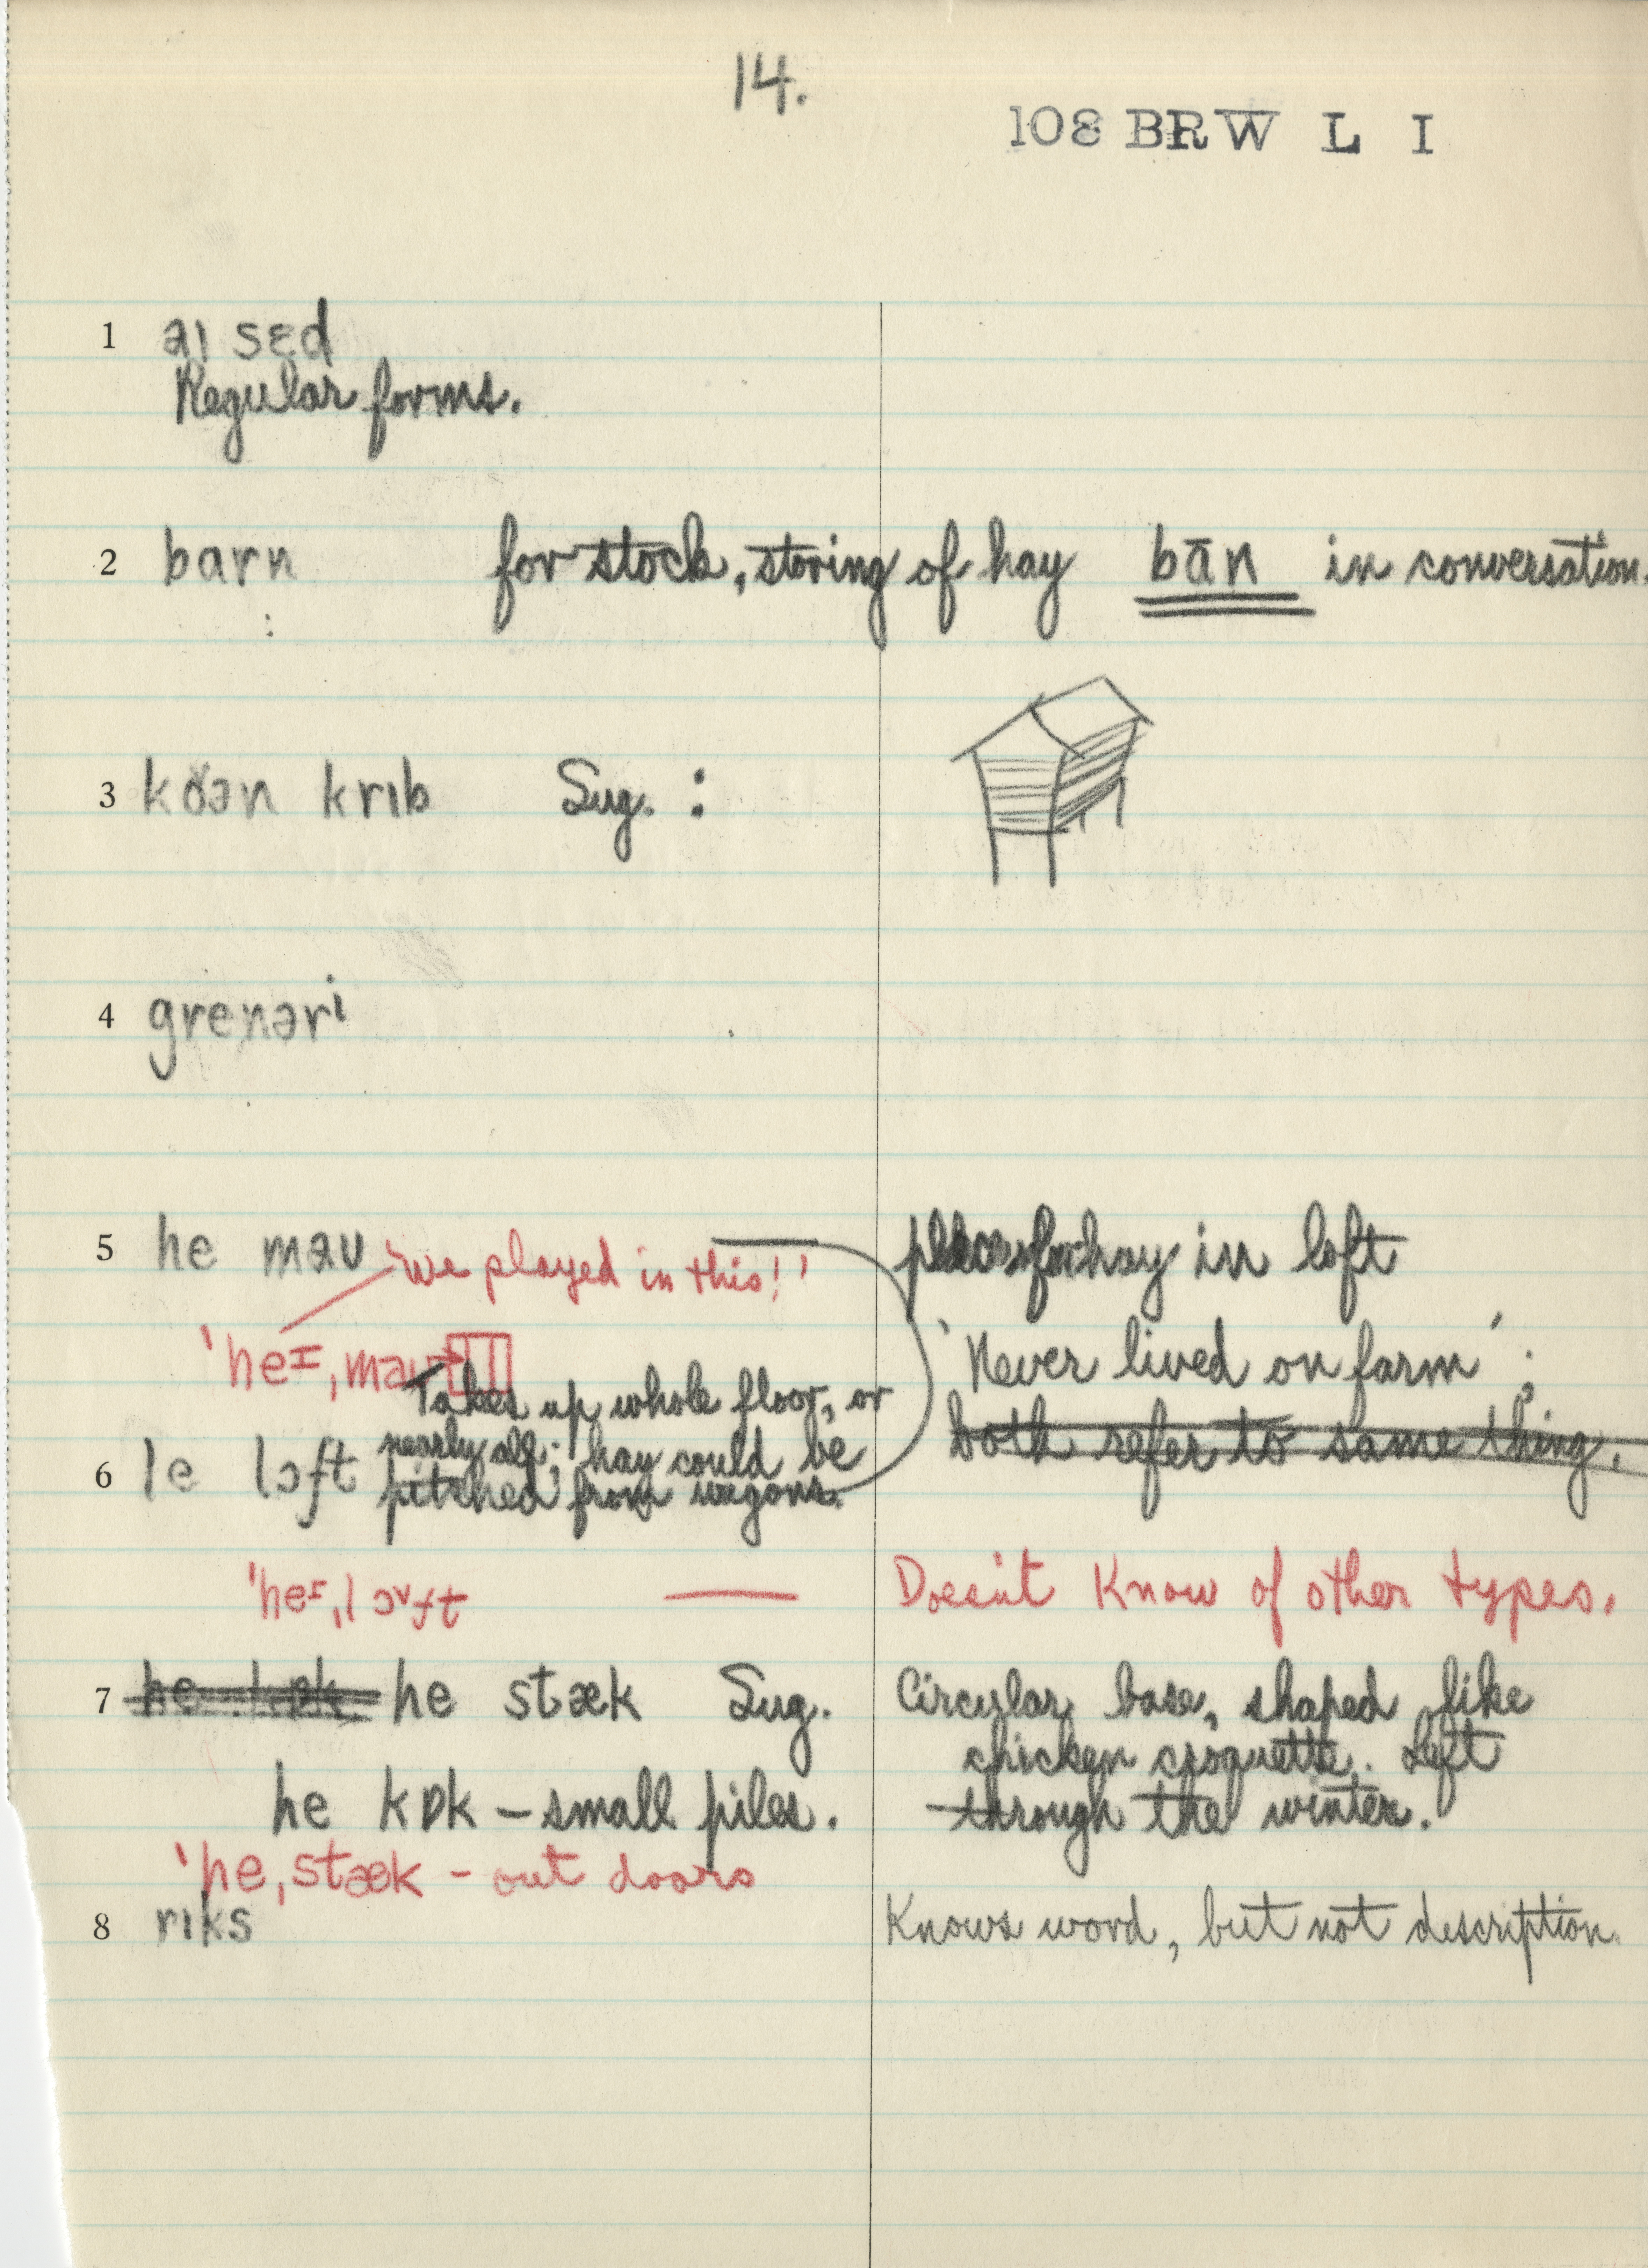 14.
108 BRW L I
1 aɪ sɛd
Regular forms.
2 barn for stock, storing of hay bān in conversation.
3 kɒ̆ən krɪb Sug. :
4 grenəri
5 he maʊ 'We played in this!' places for hay in loft
'heɪ,maʊ 'Never lived on farm';
Takes up whole floor, or
nearly all; hay could be both refer to same thing.
6 le lɔft pitched from wagons.
'heɪ,lɔ˅ft — Doesn't know of other types.
7 he kɒk he stæk Sug. Circular base, shaped like
chicken croquette. Left
he kɒk – small piles. through the winter.
'he,stæk – out doors
8 rɪks Knows word, but not description.